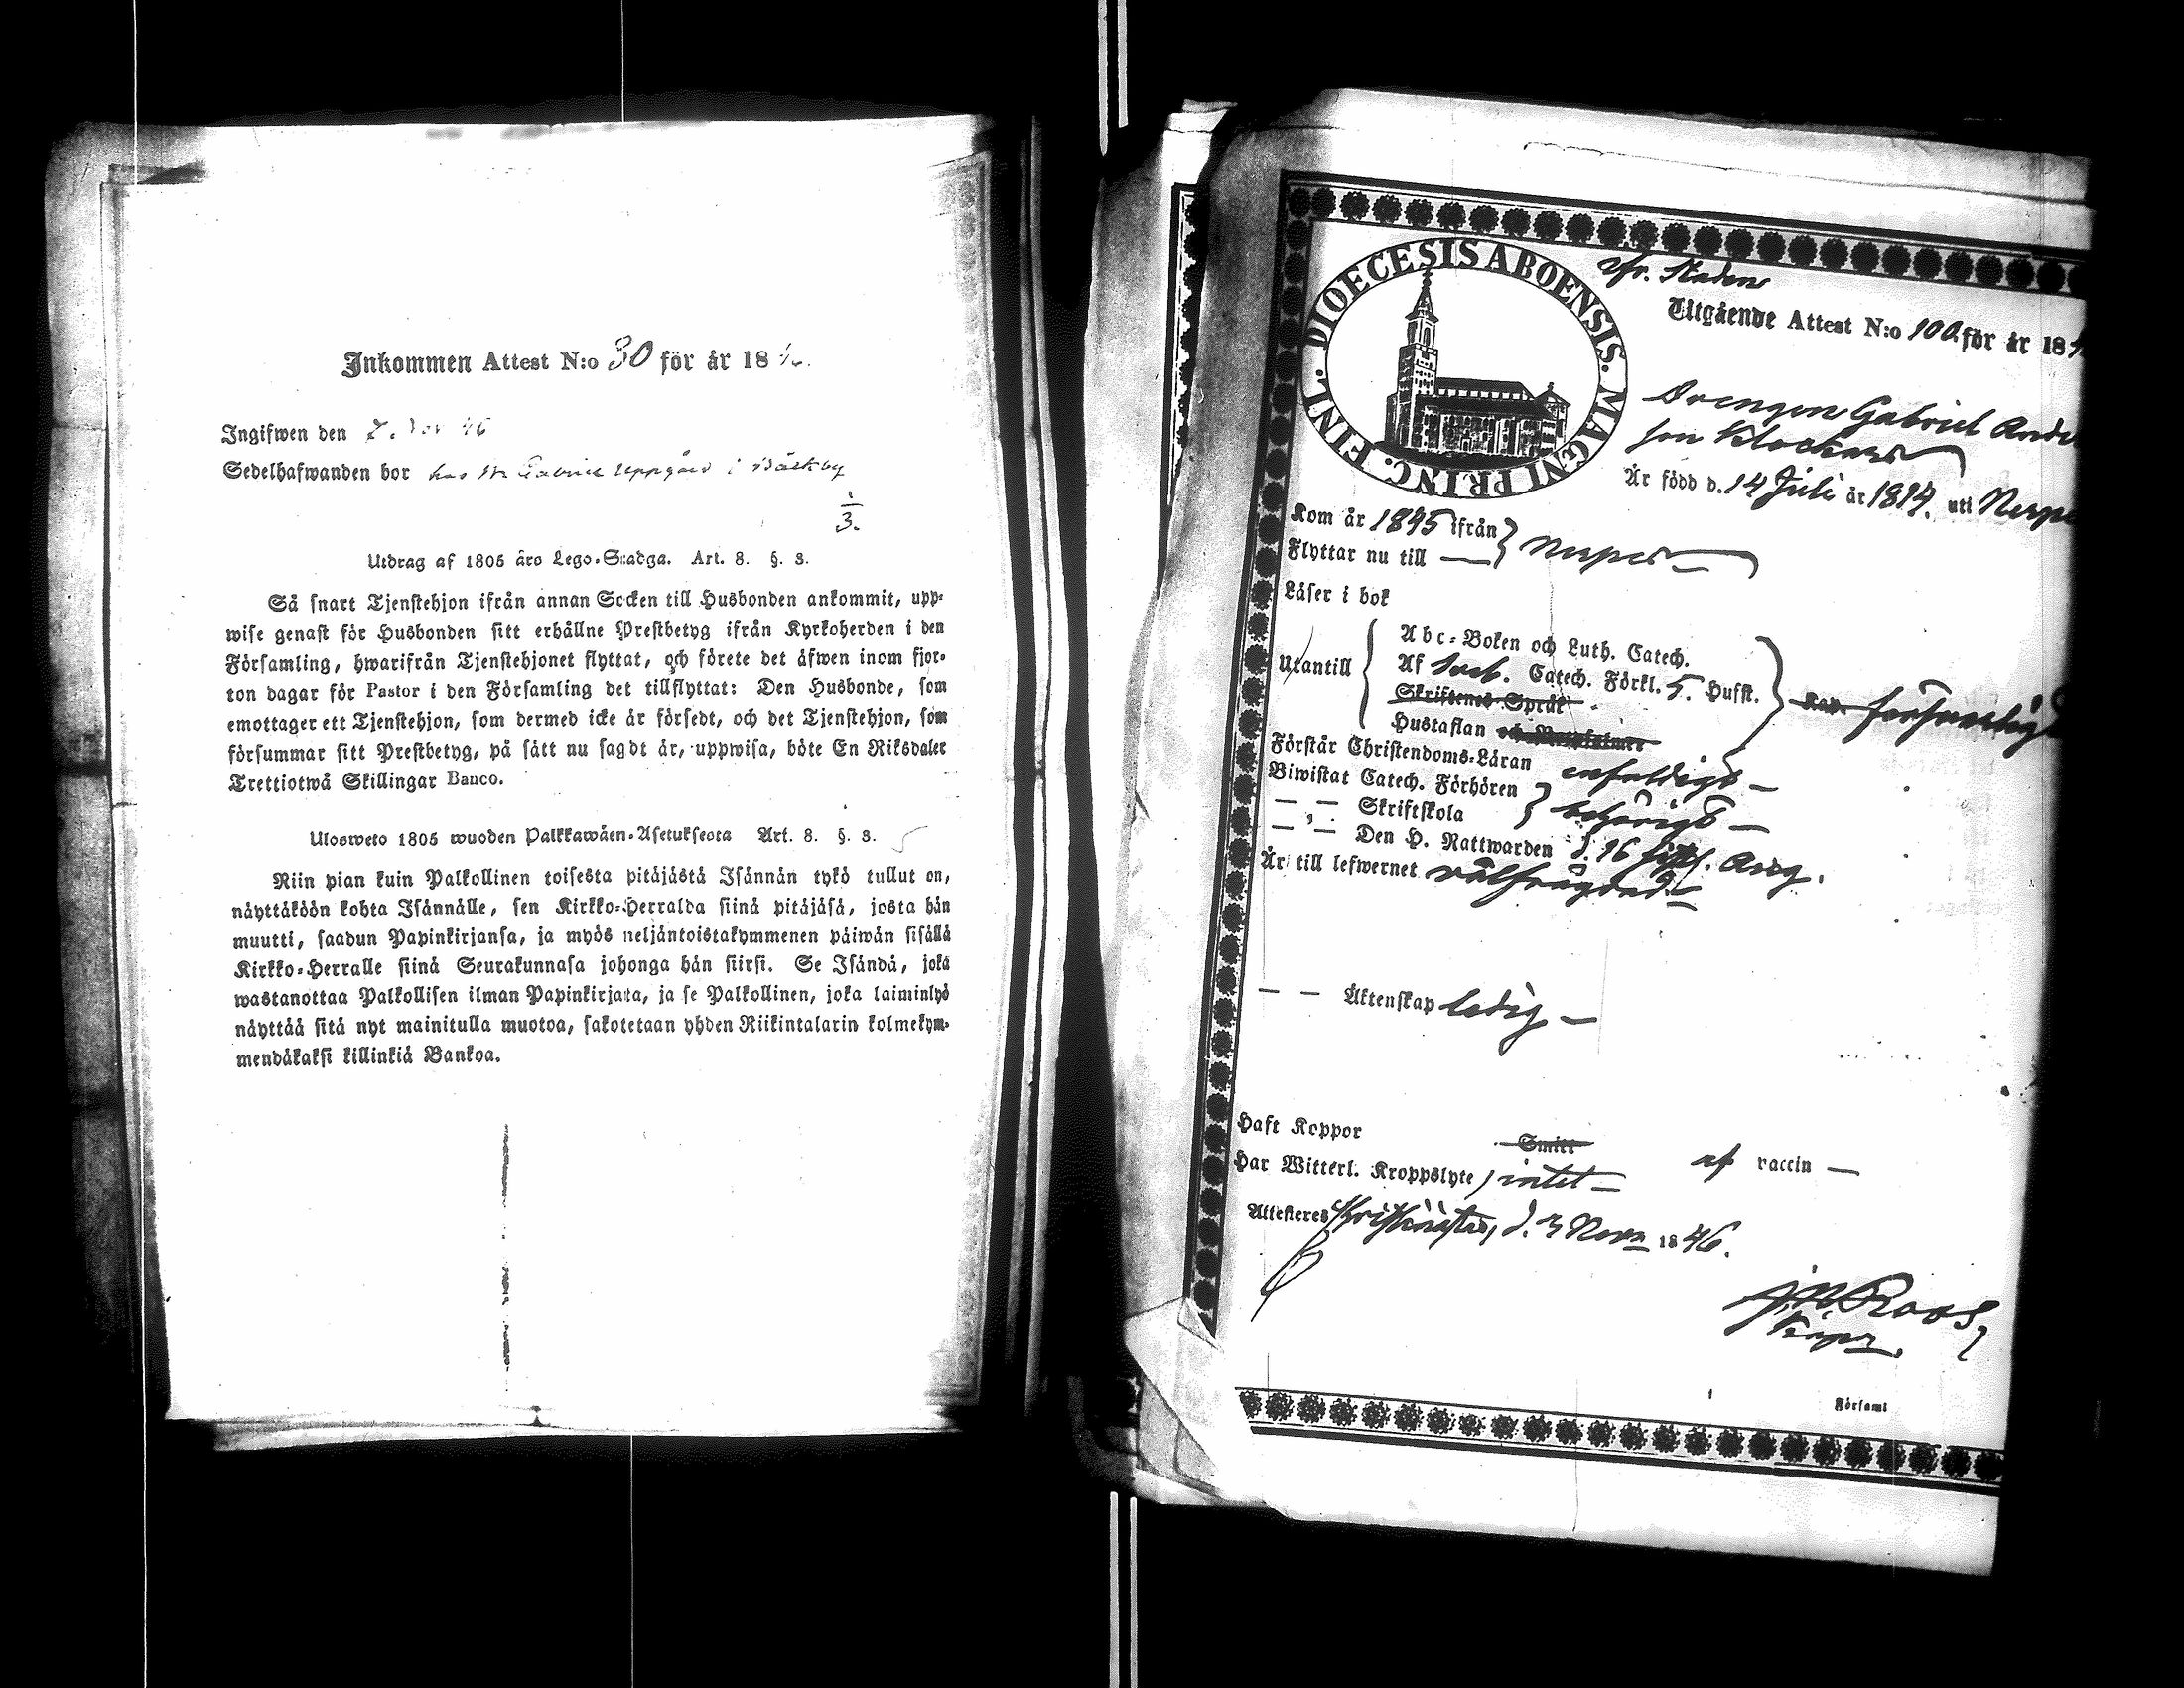 Inkommen Attest N:o 30 för år 18
Ingifwen den 7. Nov 46
Sedelhafwanden bor hos Gabriel Uppgård i Bäckby
1/3.
Utdrag af 1805 års Lego-Stadga. Art. 8. §. 3.
Så snart Tjenstehjon ifrån annan Socken till Husbonden ankommit, upp-
wise genast för Husbonden sitt erhållne Prestbetyg ifrån Kyrkoherden i den
Församling, hwarifrån Tjenstehjonet flyttat, och förete det äfwen inom fjor-
ton dagar för Pastor i den Församling det tillflyttat: Den Husbonde, som
emottager ett Tjenstehjon, som dermed icke är försedt, och det Tjenstehjon, som
försummar sitt Prestbetyg, på sätt nu sagdt är, uppwisa, böte En Riksdaler
Trettiotwå Skillingar Banco.
Ulosweto 1805 wuoden Palkkawäen-Asetuksesta Art. 8. §. 3.
Niin pian kuin Palkollinen toisesta pitäjästä Isännän tykö tullut on,
näyttäköön kohta Isännälle, sen Kirkko-Herralda siinä pitäjäsä, josta hän
muutti, saadun Papinkirjansa, ja myös neljäntoistakymmenen päiwän sisällä
Kirkko-Herralle siinä Seurakunnasa johonga hän siirsi. Se Isändä, joka
wastanottaa Palkollisen ilman Papinkirjata, ja se Palkollinen, joka laiminlyö
näyttää sitä nyt mainitulla muotoa, sakotetaan yhden Riikintalarin kolmekym-
mendäkaksi killinkiä Bankoa.
DIOECESIS ABOENSIS. MAGNI PRINC. FINL.
Utgående Attest N:o 100. för år 18
Drengen Gabriel Anders
son Klockars
Är född d. 14 Juli år 1814. uti Nerpes
Kom år 1845 ifrån } Nerpes
Flyttar nu till —
Läser i bok
Utantill
Abc-Boken och Luth. Catech.
Af Sveb. Catech. Förkl. 5. Hufst.
Skriftenes Språk
Hustaflan och
försvarlig
Förstår Christendoms-Läran enfaldigt —
Biwistat Catech. Förhören
— „ — Skriftskola } behörigt —
— — Den H. Nattwarden d. 16 sistl. Aug.
Är till lefwernet välfrägdad —
— — Äktenskap ledig —
Haft Koppor Smitt af vaccin —
Har Witterl. Kroppslyte intet —
Attesteres Kristinæstad, d. 3 Novr 1846.
J. N. Roos
Församl